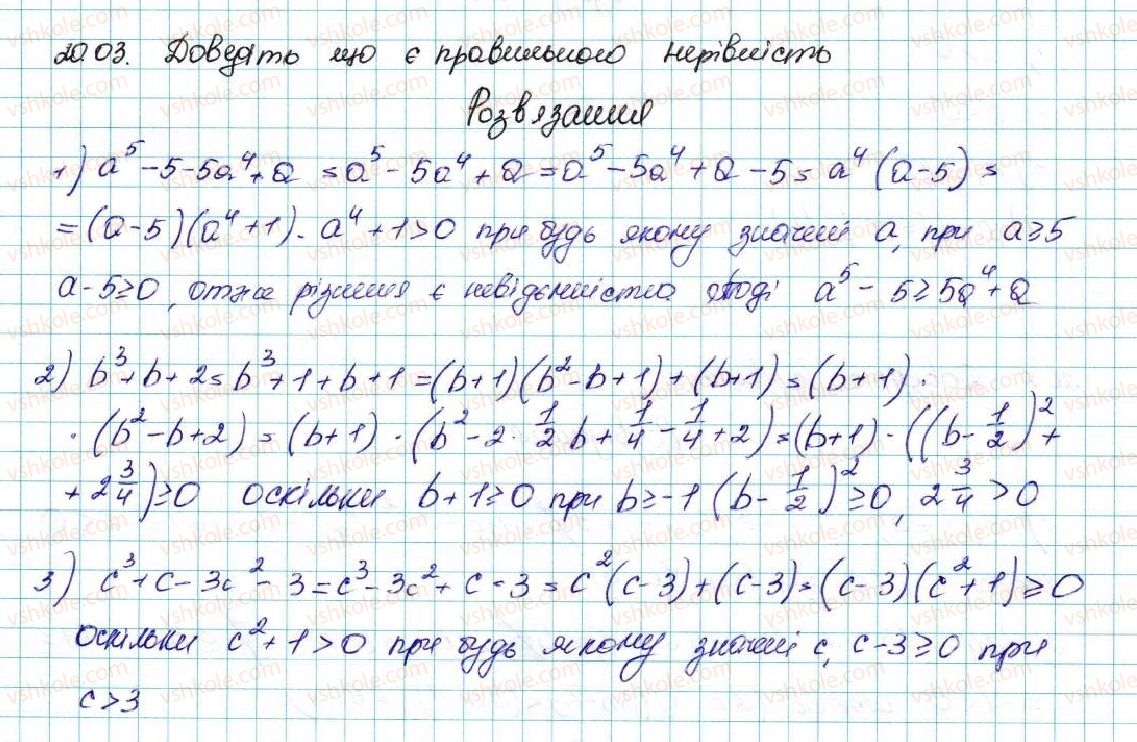 20.03. Доведіть що є правильного нерівність
Розв'язання
1) a⁵ - 5 - 5a⁴ + a = a⁵ - 5a⁴ + a = a⁵ - 5a⁴ + a - 5 = a⁴ (a - 5) =
= (a - 5)(a⁴ + 1). a⁴ + 1 > 0 при будь якому значені a, при a ≥ 5
a - 5 ≥ 0, отже різниця є невідємністю тоді a⁵ - 5 ≥ 5a⁴ + a
2) b³ + b + 2 = b³ + 1 + b + 1 = (b + 1)(b² - b + 1) + (b + 1) = (b + 1) ·
· (b² - b + 2) = (b + 1) · (b² - 2 · 1/2 b + 1/4 - 1/4 + 2) = (b + 1) · ((b - 1/2)² +
+ 2 3/4) ≥ 0 оскільки b + 1 ≥ 0 при b ≥ -1 (b - 1/2)² ≥ 0, 2 3/4 > 0
3) c³ + c - 3c² - 3 = c³ - 3c² + c - 3 = c² (c - 3) + (c - 3) = (c - 3)(c² + 1) ≥ 0
оскільки c² + 1 > 0 при будь якому значені c, c - 3 ≥ 0 при
c > 3